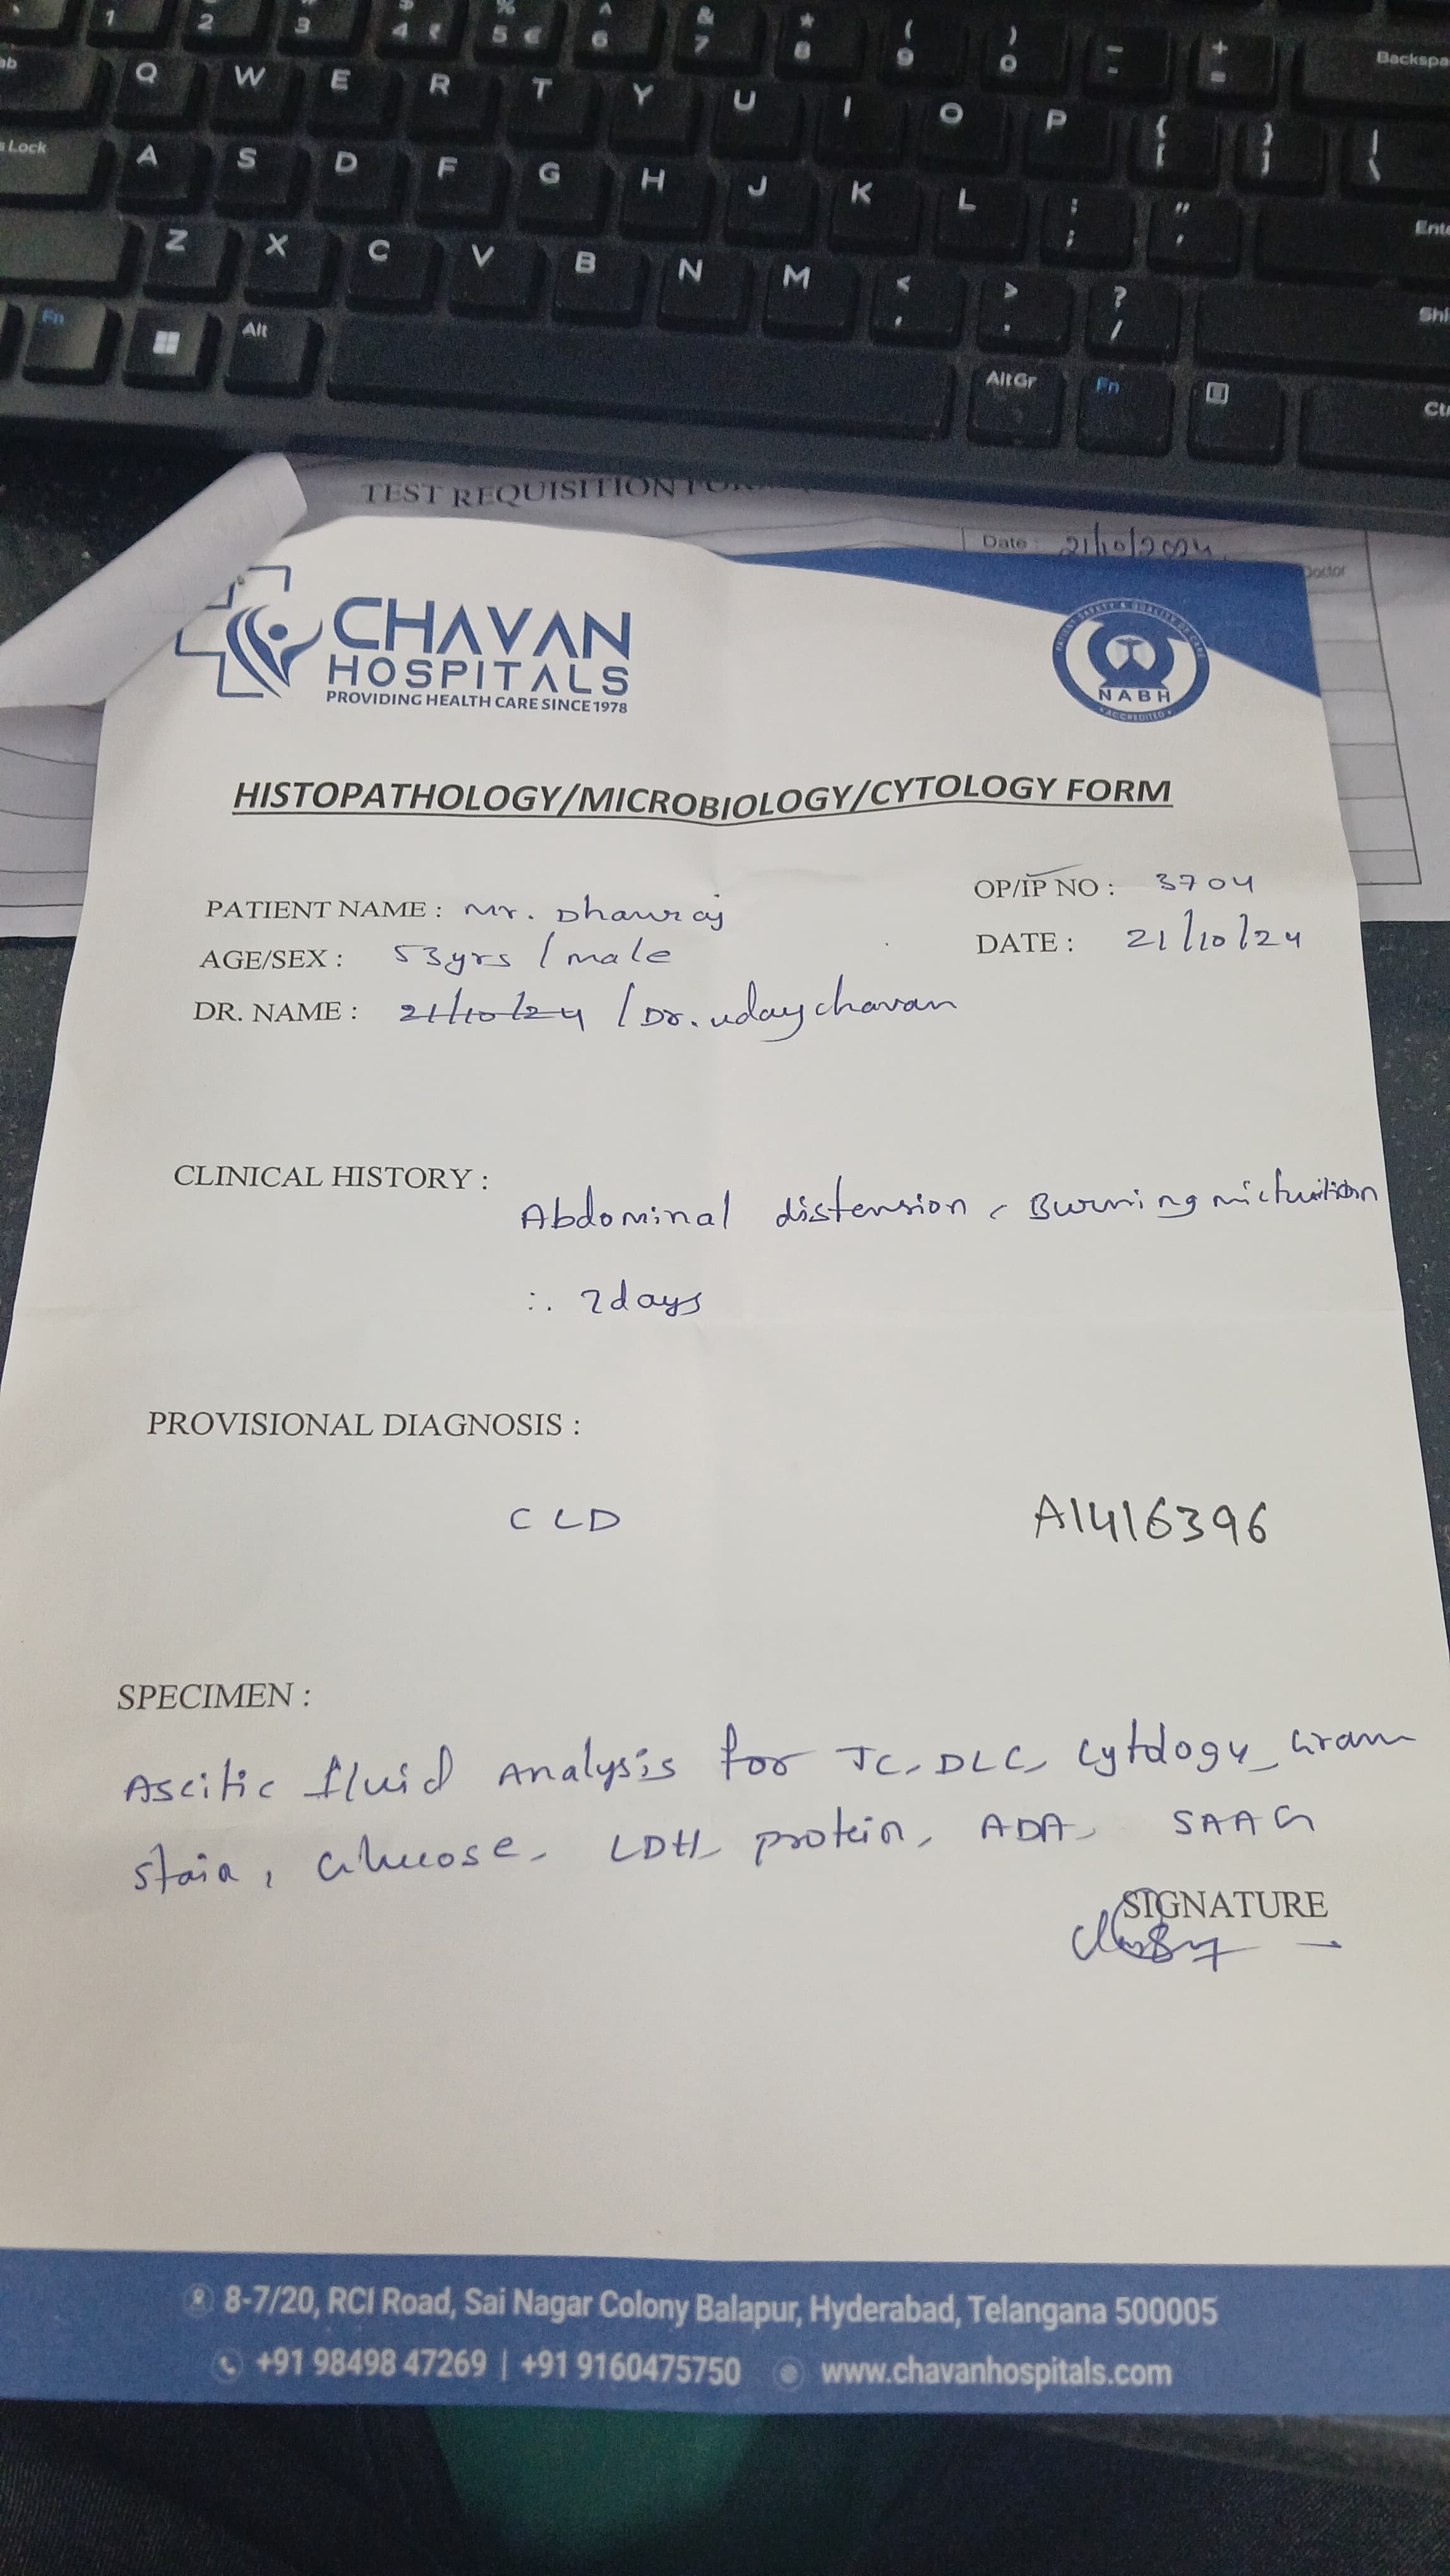 1 2 3 4 ₹ 5 € 6 7 8 9 0 - =
% ^ & * ( ) _ +
Backspa
ab Q W E R T Y U I O P { [ } ] | \
s Lock A S D F G H J K L : ; " ' Ente
Z X C V B N M < , > . ? / Shi
Fn Alt AltGr Fn Ctr
TEST REQUISITION FOR
Date : 21/10/2024
Doctor
CHAVAN
HOSPITALS
PROVIDING HEALTH CARE SINCE 1978
PATIENT SAFETY & QUALITY OF CARE
NABH
• ACCREDITED •
HISTOPATHOLOGY/MICROBIOLOGY/CYTOLOGY FORM
OP/IP NO : 3704
PATIENT NAME : Mr. Dhanraj
DATE : 21/10/24
AGE/SEX : 53yrs / male
DR. NAME : 21/10/24 / Dr. uday chavan
CLINICAL HISTORY :
Abdominal distension, Burning micturition
:. 2days
PROVISIONAL DIAGNOSIS :
CLD
A1416396
SPECIMEN :
Ascitic fluid Analysis for TC, DLC, Cytology, Gram
stain, Glucose, LDH, protein, ADA, SAAG
SIGNATURE
8-7/20, RCI Road, Sai Nagar Colony Balapur, Hyderabad, Telangana 500005
+91 98498 47269 | +91 9160475750 www.chavanhospitals.com